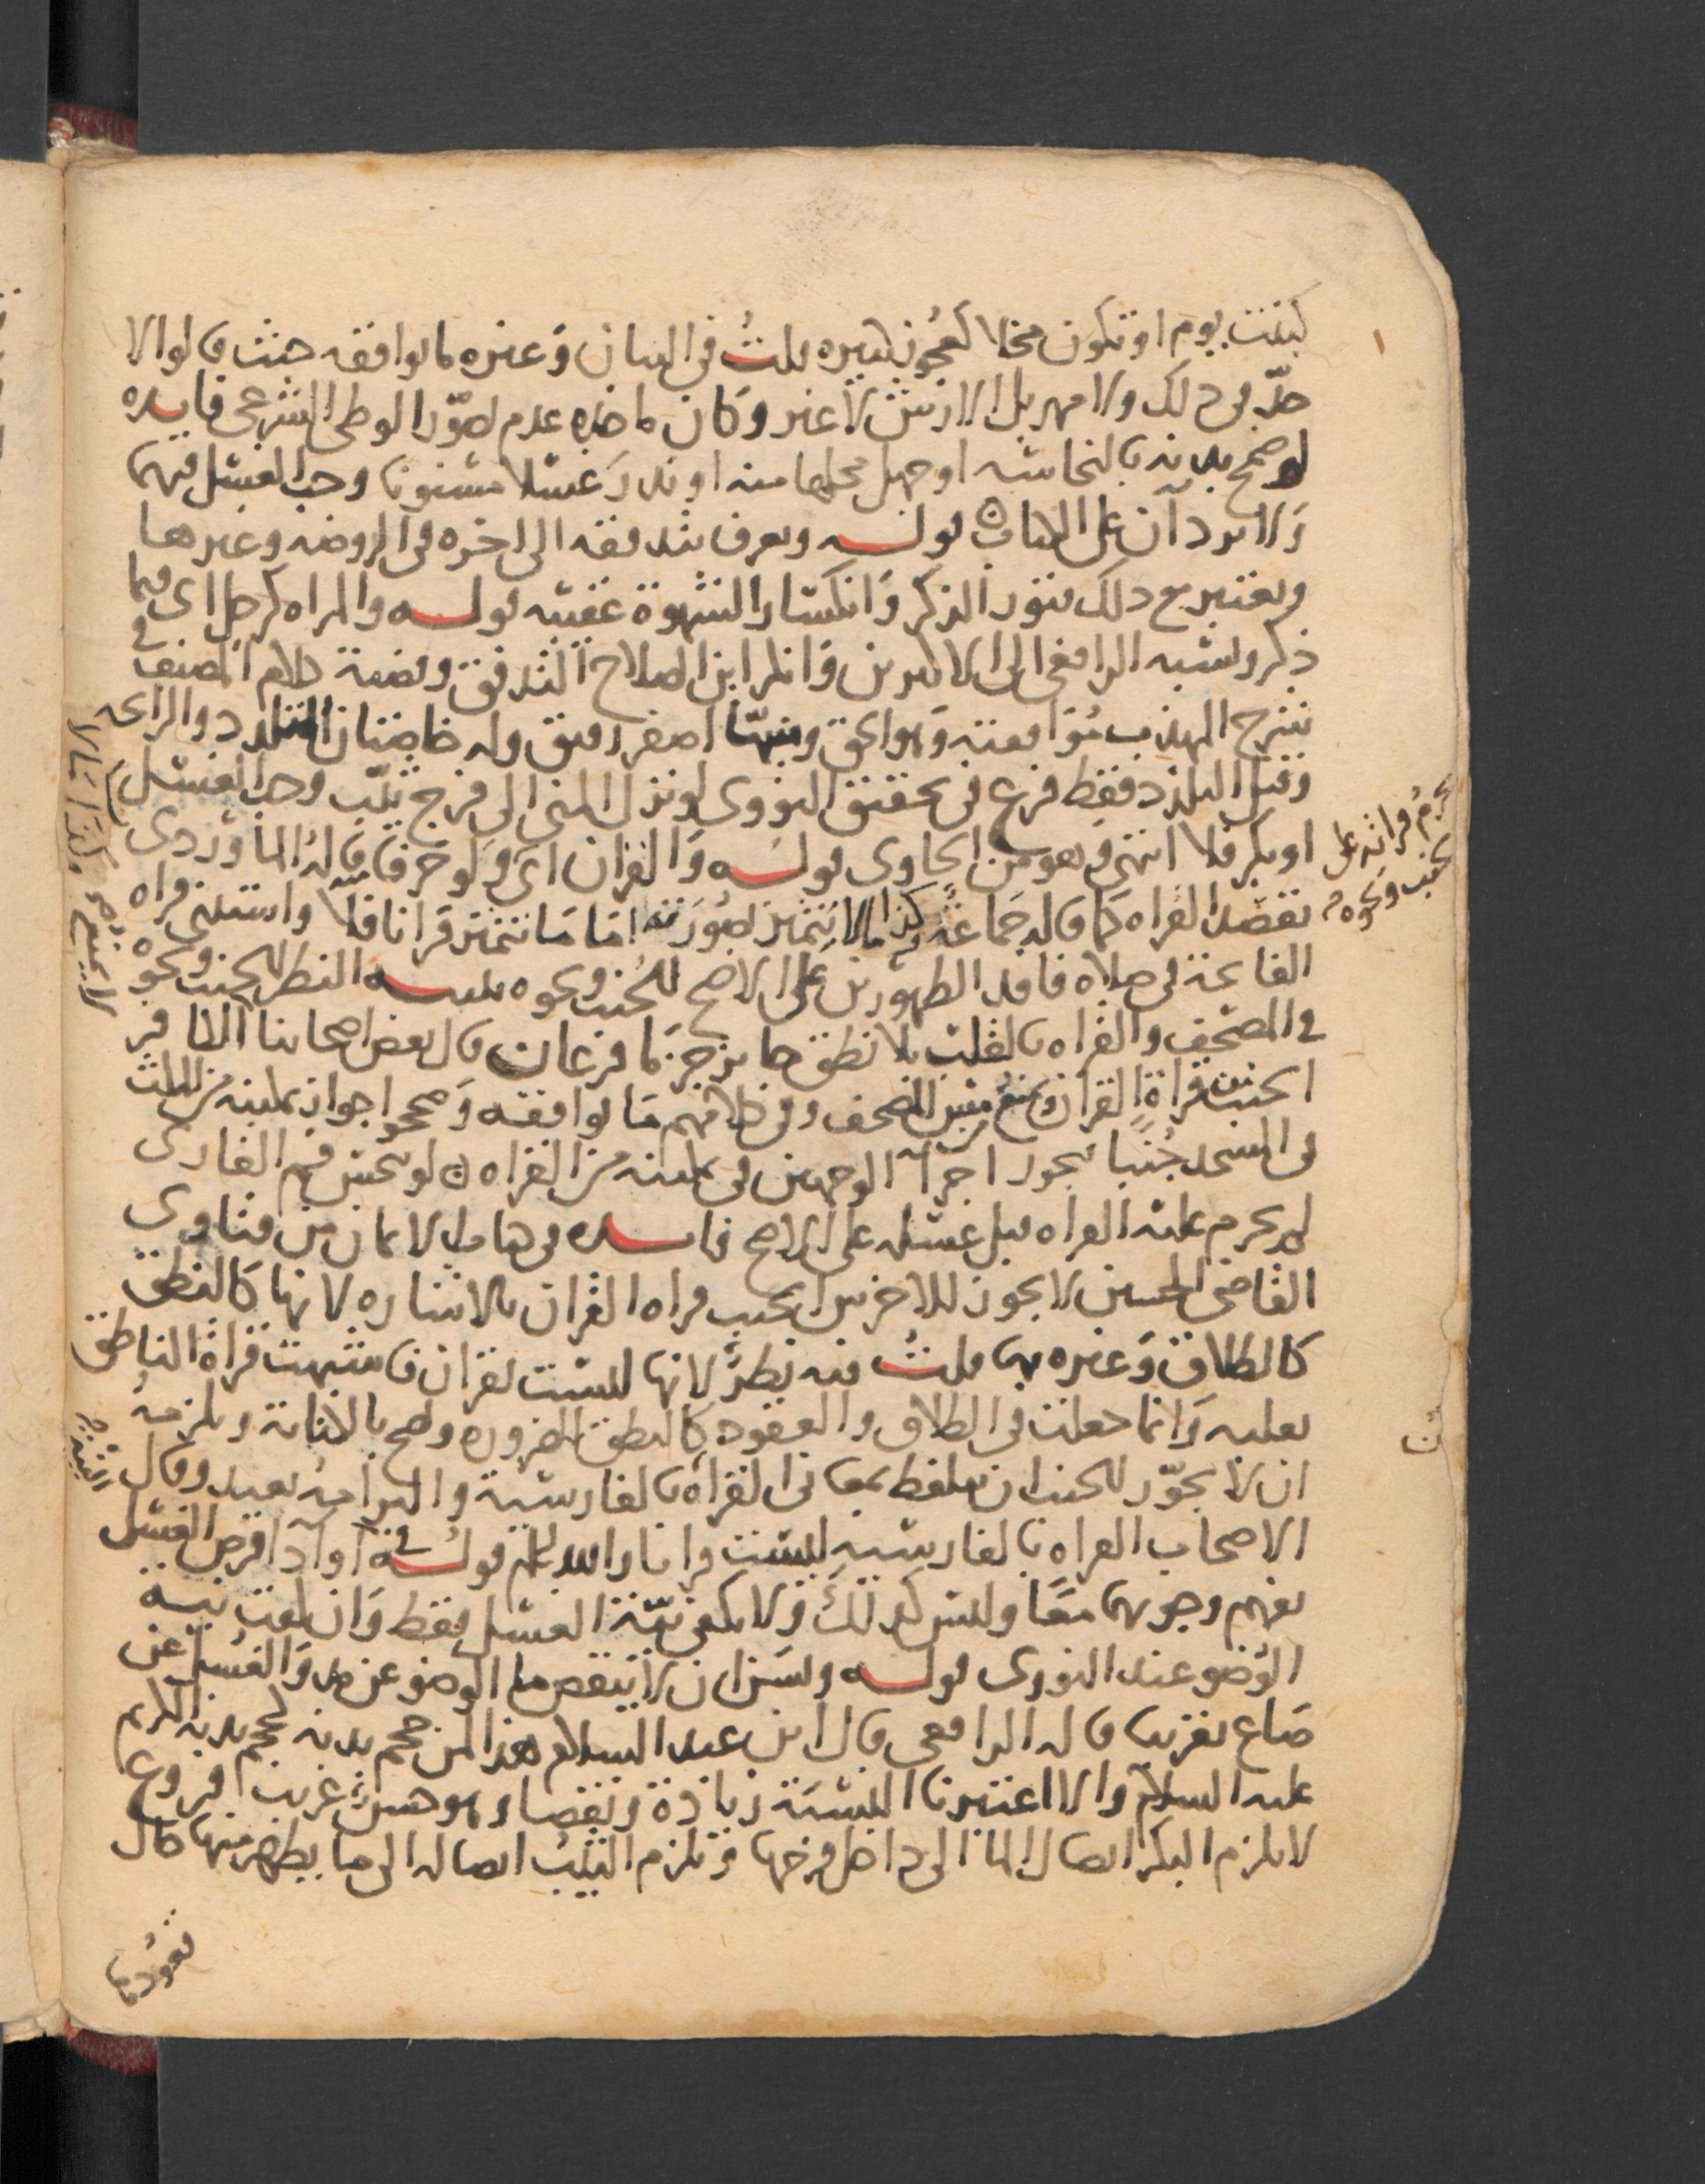 كبنت يوم او تكون محلا كعجوز كبيره قلت في البيان وغيره ما يوافقه حيث قالوا لا
حد في ذلك ولا مهر بل الارش لا غير وكان ماخذه عدم تصور الوطي الشرعي فايده
لو ضمخ بدنه بالنجاسه او جهل محلها منه او نذر غسلا مسنونا وجب الغسل فيهما
ولا يردان على الكتاب قوله ويعرف بتدفقه الى اخره في الروضه وغيرها
ويعتبر مع ذلك فتور الذكر وانكسار الشهوة عقيبه قوله والمراه كرجل اى فيما
ذكر ونسبه الرافعي الى الاكثرين وانكر ابن الصلاح التدفق وقضية كلام المصنف في
شرح المهذب موافقته وهو الحق ومنيها اصفر رقيق وله خاصيتان التلذذ والرائحه
وقيل التلذذ فقط فرع في تحقيق النووى لو نزل المني الى فرج ثيب وجب الغسل
او بكر فلا انتهى وهو من الحاوى قوله والقران اى ولو حرفا قاله الماوردى
بقصد القراه كما قاله جماعة كذا مالا يتميز بصورته اما ما يتميز قرانا فلا واستثنى قراه
الفاتحة في صلاه فاقد الطهورين على الاصح للجنب ونحوه تنبيه النظر للجنب ونحوه
في المصحف والقراه بالقلب بلا نطق جايز جزما فرعان قال بعض اصحابنا الكافر
الجنب قراة القران ويمنع من مس المصحف وفي كلامهم ما يوافقه وصححوا جواز تمكينه من اللبث
في المسجد جنبا فيجوز اجرآ الوجهين في تمكينه من القراه لو تنجس فم القارى
لم يحرم عليه القراه قبل غسله على الاصح فايده في فتاوى
القاضي الحسين لا يجوز للاخرس الجنب قراه القران بالاشاره لانها كالنطق
كالطلاق وغيره بها قلت فيه نظر لانها ليست بقران فاشبهت قراة الناطق
بقلبه وانما جعلت في الطلاق والعقود كالنطق للضروره وتصح بالكتابة ويلزمه
ان لا يجوز للجنب ان يتلفظ بمعاني القراه بالفارسية والتزامه بعيد وقال
الاصحاب القراه بالفارسيه ليست قرانا والله اعلم قوله في او ادا فرض الغسل
يفهم وجوبهما معا وليس كذلك ولا يكفي نية الغسل فقط وان كفت نية
الوضو عند النووى قوله ويسن ان لا ينقص ما الوضو عن مد والغسل عن
صاع تقريبا قاله الرافعي قال ابن عبد السلام هذا لمن حجم بدنه كحجم بدنه الكريم
عليه السلام والا اعتبرنا النسبة زيادة ونقصا وهو حسن غريب فروع
لا يلزم البكر ايصال الما الى داخل فرجها ويلزم الثيب ايصاله الى ما يظهر منها حال
قعودها
يحرم قراته على
الجنب ونحوه